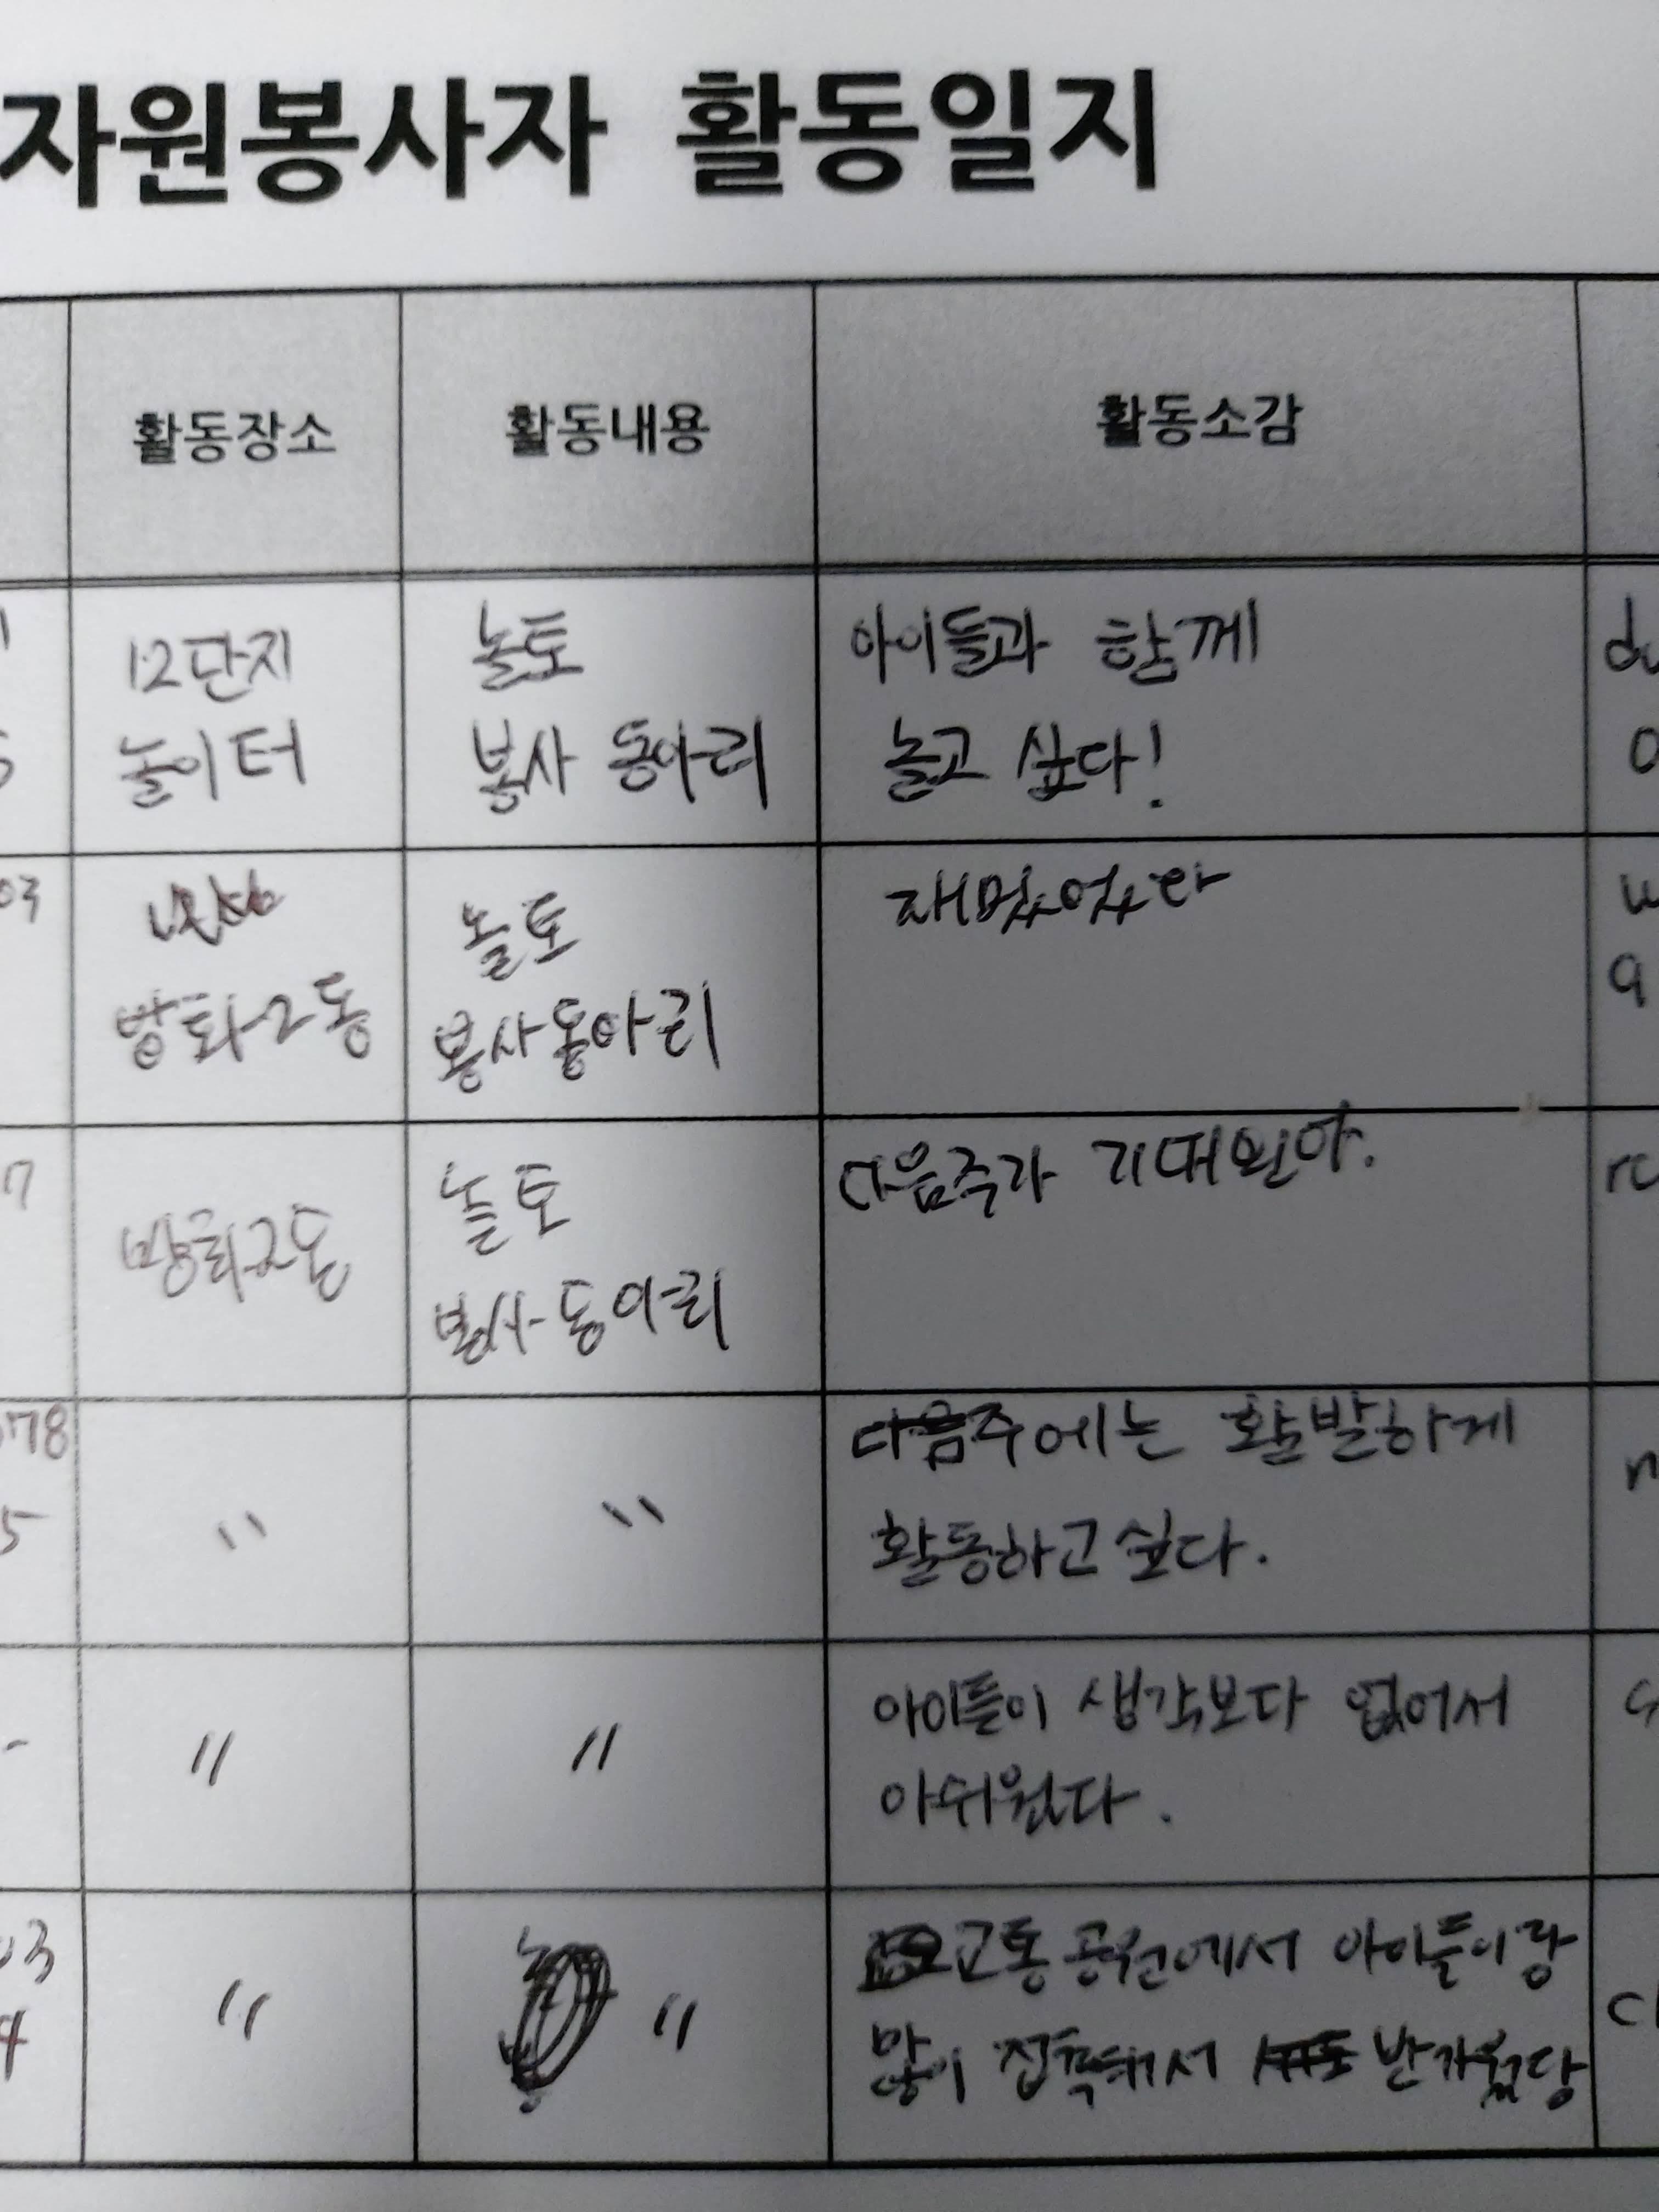 자원봉사자 활동일지
활동장소 활동내용 활동소감
12단지 놀토 아이들과 함께
놀이터 봉사 동아리 놀고 싶다!
03 놀토 재밌었다
방화2동 봉사동아리
7 놀토 다음주가 기대된다.
방화2동 봉사동아리
78 다음주에는 활발하게
5 〃 〃 활동하고싶다.
아이들이 생각보다 없어서
〃 〃 아쉬웠다.
03 교통공원에서 아이들이랑
4 〃 〃 많이 접촉돼서 반가웠당